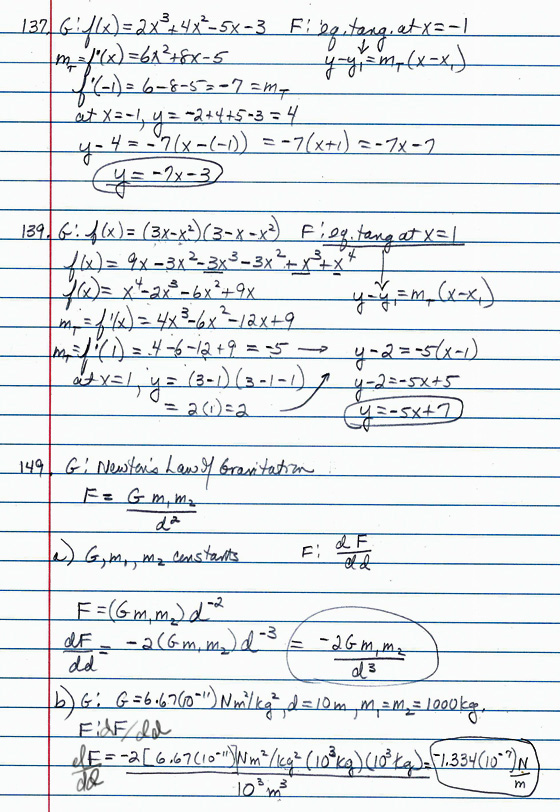 137. G: f(x) = 2x³+4x²-5x-3 F: eq. tang. at x=-1
m_T = f'(x) = 6x²+8x-5 y-y₁=m_T(x-x₁)
f'(-1) = 6-8-5 = -7 = m_T
at x=-1, y = -2+4+5-3 = 4
y-4 = -7(x-(-1)) = -7(x+1) = -7x-7
y = -7x-3
139. G: f(x) = (3x-x²)(3-x-x²) F: eq. tang at x=1
f(x) = 9x-3x²-3x³-3x²+x³+x⁴
f(x) = x⁴-2x³-6x²+9x y-y₁=m_T(x-x₁)
m_T = f'(x) = 4x³-6x²-12x+9
m_T = f'(1) = 4-6-12+9 = -5 → y-2=-5(x-1)
at x=1, y = (3-1)(3-1-1) y-2=-5x+5
= 2(1)=2 y=-5x+7
149. G: Newton's Law of Gravitation
F = G m₁m₂/d²
a) G, m₁, m₂ constants F: dF/dd
F=(Gm₁m₂)d⁻²
dF/dd = -2(Gm₁m₂)d⁻³ = -2Gm₁m₂/d³
b) G: G=6.67(10⁻¹¹) Nm²/kg², d=10m, m₁=m₂=1000kg.
F: dF/dd
dF/dd = -2[6.67(10⁻¹¹)]Nm²/kg²(10³kg)(10³kg)/10³m³ = -1.334(10⁻⁷)N/m